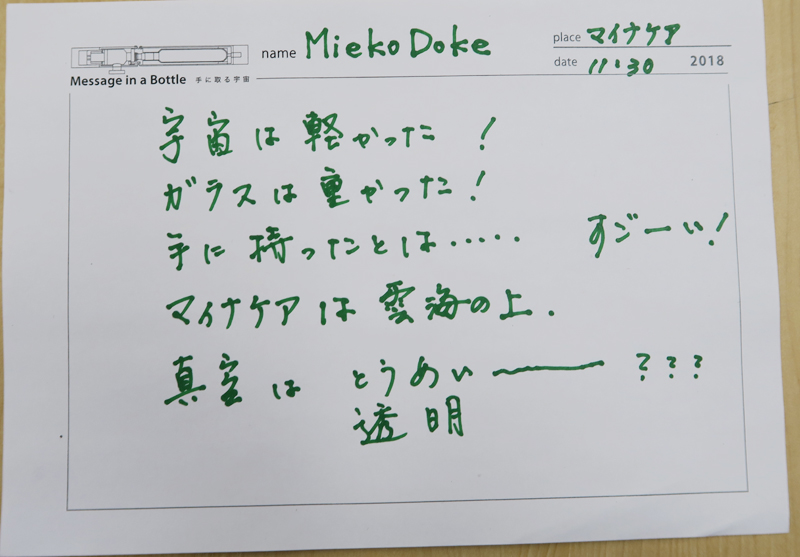 name Mieko Doke
place マイナケア
date 11・30 2018
Message in a Bottle 手に取る宇宙
宇宙は軽かった!
ガラスは重かった!
手に持ったとは・・・・・ すごーい!
マイナケアは雲海の上.
真空は とうめい〜 ???
透明